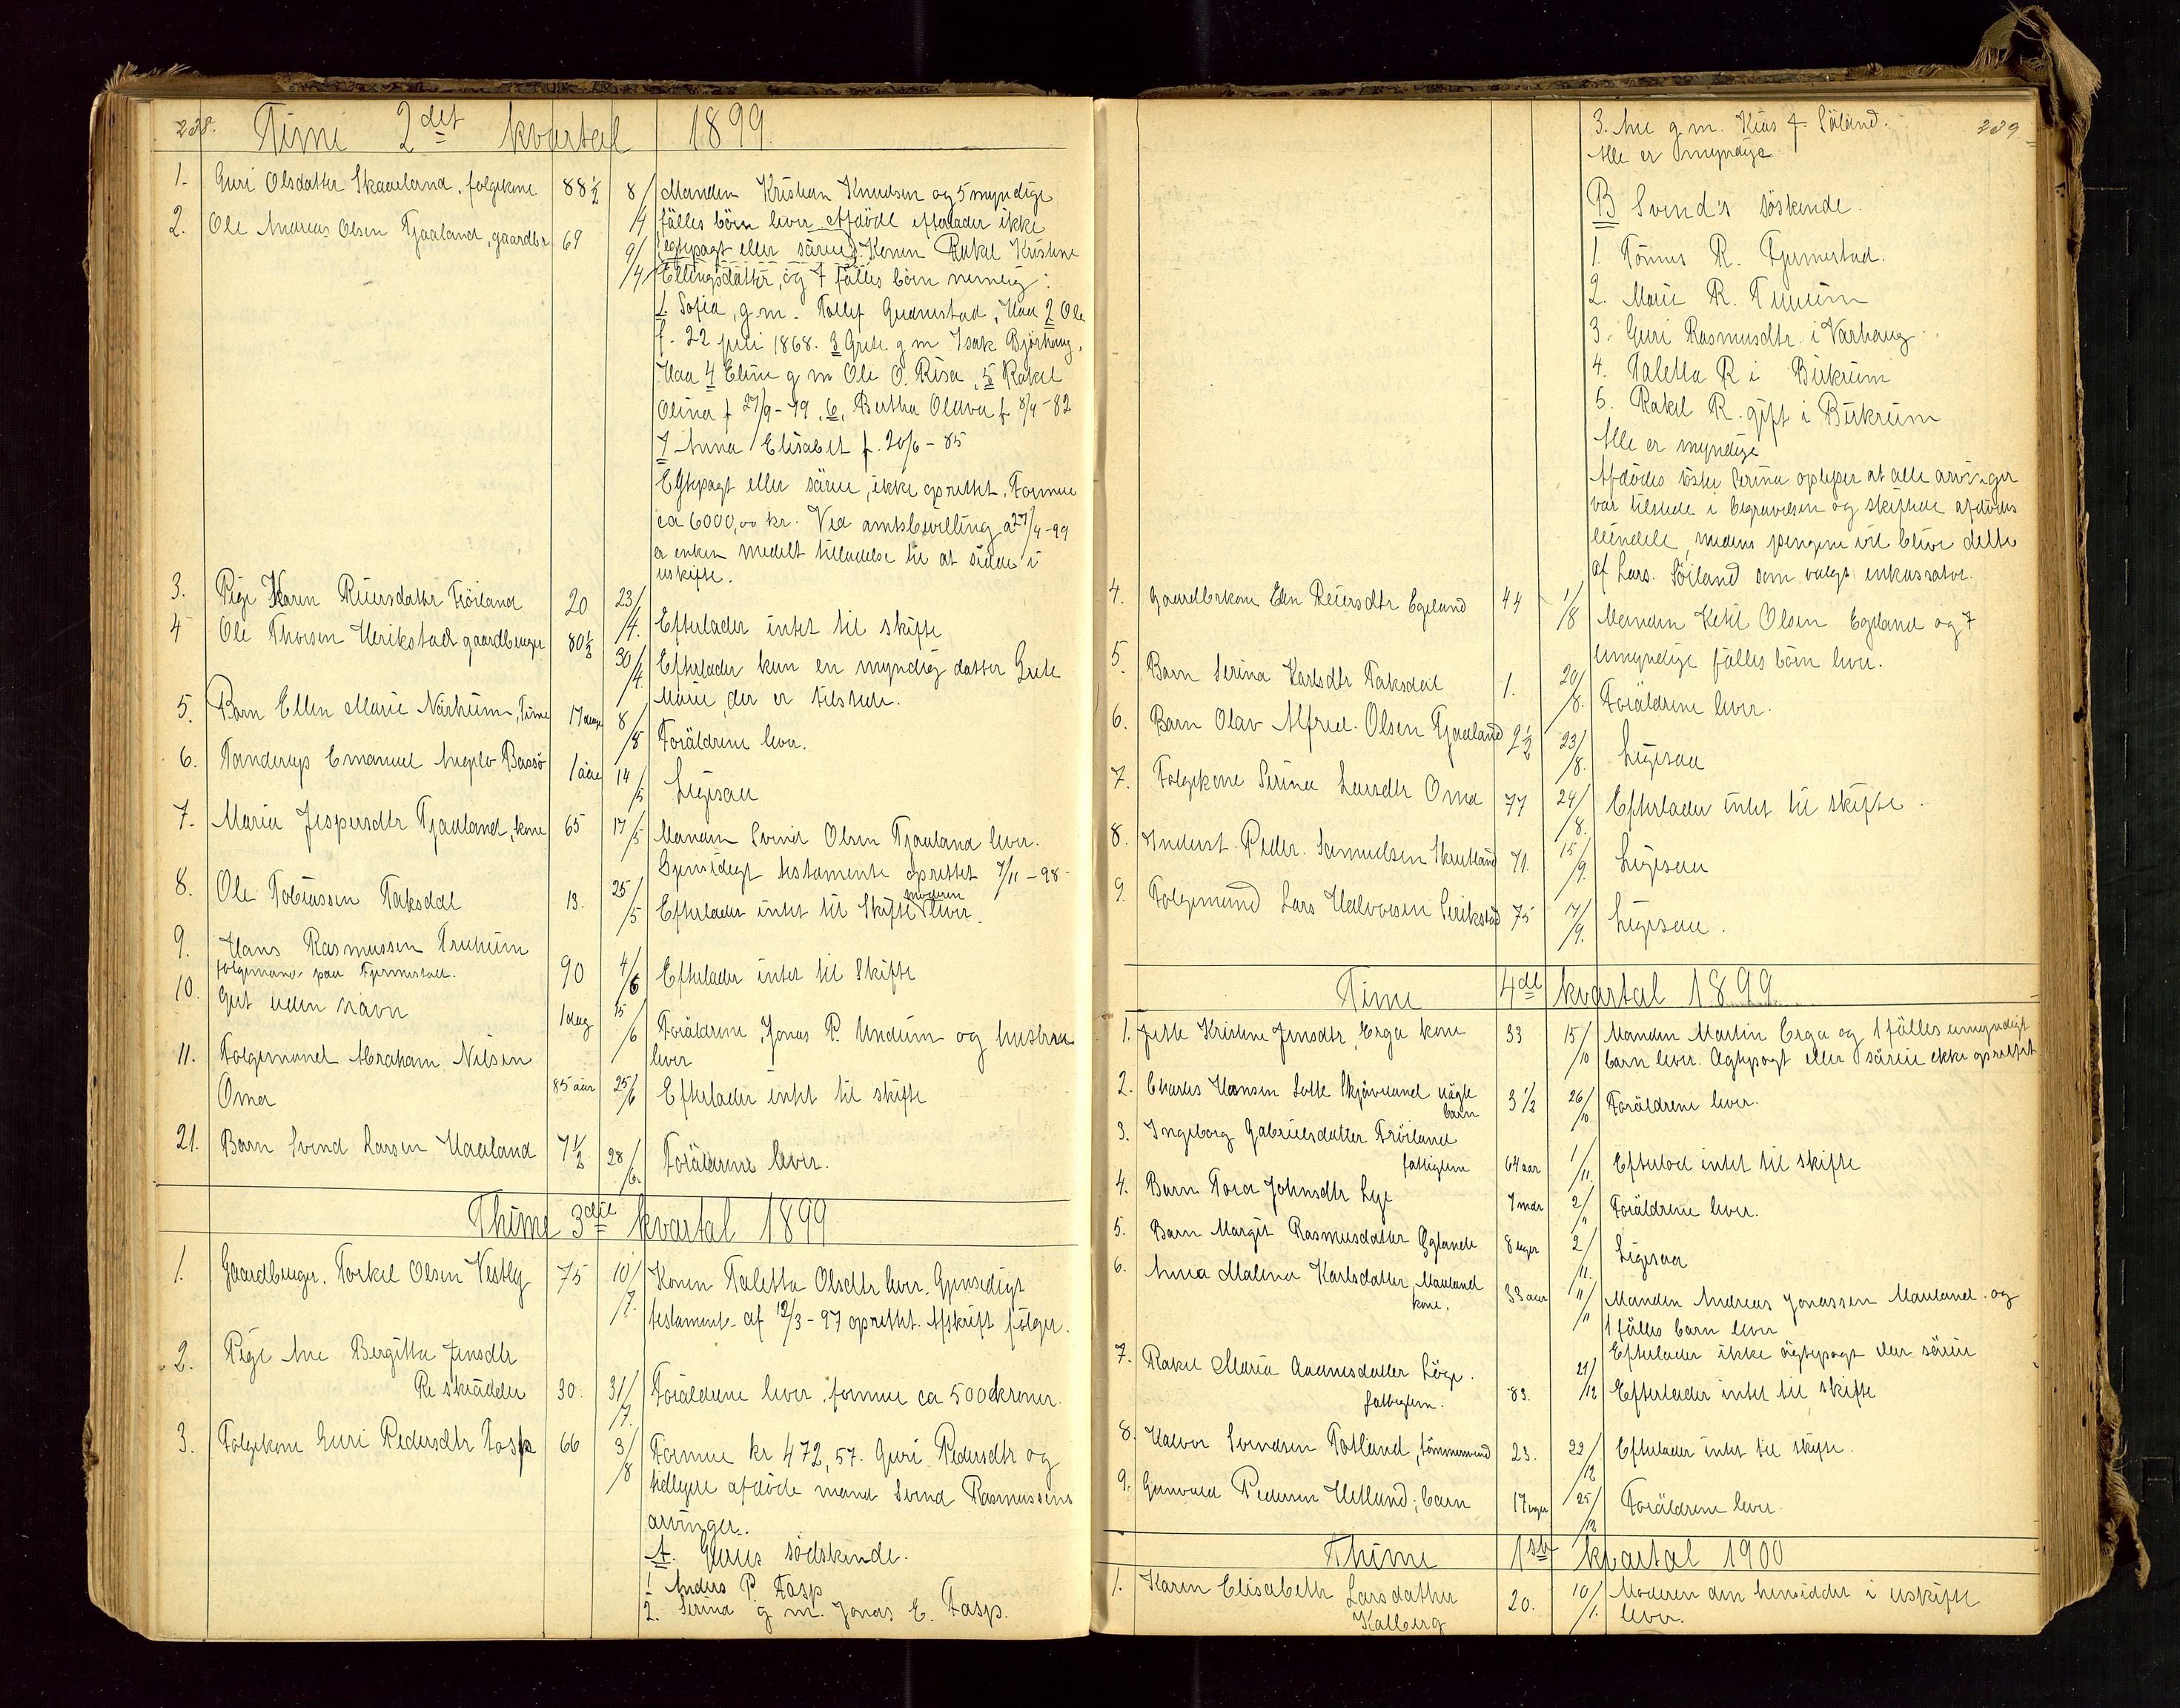 238.
Time 2det kvartal 1899
1. Guri Olsdatter Skaaeland, folgekone 88½ 8/4 Manden Kristian Knudsen og 5 myndige
fälles börn lever. Afdöde efterlader ikke
egtepagt eller säreie.
2. Ole Andreas Olsen Tjaaland, gaardbr 69 9/4 Konen Rakel Kristine
Ellingsdatter, og 7 fälles börn nemlig:
1. Sofia, g. m. Tollef Gudmestad, Haa 2 Ole
f. 22 juli 1868. 3 Grete g m Isak Björhaug,
Haa 4 Eline g m Ole O. Risa, 5 Rakel
Olina f 27/9-79, 6, Bertha Olava f 8/4-82
7 Anna Elisabet f. 20/6-85
Egtepagt eller säreie, ikke oprettet. Formue
ca 6000,00 kr. Ved amtsbevilling a 27/4-99
er enken medelt tilladelse til at sidde i
uskifte.
3. Pige Karen Reiersdatter Fröiland 20 23/4. Efterlader intet til skifte
4 Ole Thorsen Herikstad gaardbruger 80½ 30/4. Efterlader kun en myndig datter Grete
Marie, der er tilstede.
5. Barn Ellen Marie Närheim, Time 17 dage 8/5 Foräldrene lever.
6. Tanderup Emanuel Bassö 1 aar 14/5 Ligesaa
7. Maria Jespersdtr Tjaaland, kone 65 17/5 Manden Svend Olsen Tjaaland lever.
Gjensidigt testamente oprettet 7/11-98-
8. Ole Tobiassen Taksdal 13. 25/5 Efterlader intet til Skifte moderen lever.
9. Hans Rasmussen Fruheim
folgemand paa Fjermestad. 90 4/6 Efterlader intet til Skifte
10. Gut uden navn 1 dag 15/6 Foräldrene, Jonas P. Undheim og hustru
lever
11. Folgemand Abraham Nilsen
Oma 85 aar 25/6 Efterlader intet til skifte
21. Barn Svend Larsen Haaland 7½ 28/6. Foräldrene lever.
Thime 3die kvartal 1899
1. Gaardbruger. Torkel Olsen Vestly 75 10/7. Konen Taletta Olsdtr lever. Gjensidigt
testamente af 12/3-97 oprettet. Afskrift fölger.
2. Pige Ane Bergitta Jensdtr
Re skrädder 30. 31/7. Foräldrene lever. formue ca 500 kroner.
3. Folgekone Guri Pedersdtr Tasp 66 3/8 Formue kr 472,57. Guri Pedersdtr og
tidligere afdöde mand Svend Rasmussens
arvinger.
A. Guris södskende.
1 Anders P. Tasp
2. Serina g m. Jonas E. Tasp.
239
3. Ane g m. Kias F. Säland.
Alle er myndige
B Svend's söskende.
1. Tönnes R. Fjermestad.
2. Marie R. Fruheim
3. Guri Rasmusdtr. i Varhaug.
4. Taletta R i Birkreim
5. Rakel R. gift i Birkreim
Alle er myndige
Afdödes söster Serina oplyser at alle arvinger
var tilstede i begravelsen og skiftede afdödes
eiendele, medens pengene vil blive delte
af Lars. Söiland som valgt inkassator.
4. Gaardbrkone Elen Reiersdtr Egeland 44 1/8 Manden Ketil Olsen Egeland og 7
umyndige fälles börn lever.
5. Barn Serina Karlsdtr Taksdal 1. 20/8. Foräldrene lever.
6. Barn Olav Alfred. Olsen Tjaaland 2½ 23/8. Ligesaa
7. Folgekone Serina Larsdtr Oma 77 24/8. Efterlader intet til skifte.
8. Inderst. Peder. Samuelsen 71. 15/9. Ligesaa
9. Folgemand Lars Halvorsen Serikstad 75 17/9. Ligesaa.
Time 4de kvartal 1899
1. Jette Kristine Jensdtr, Erga kone 33 15/10 Manden Martin Erga og 1 fälles umyndigt
barn lever. Ägtepagt eller säreie ikke oprettet
2. Charles Hansen Lotte Skjäveland uägte
barn 3½ 26/10 Foräldrene lever.
3. Ingeborg Gabrielsdatter Fröiland
fattiglem 64 aar 1/11. Efterlod intet til skifte
4. Barn Tora Johnsdtr Lye 7 mdr 2/11 Foräldrene lever.
5. Barn Margit Rasmusdatter 8 uger 2/11. Ligesaa
6. Anna Malena Karlsdatter, Mauland
kone. 33 aar 11/11 Manden Andreas Jonassen Mauland. og
1 fälles barn lever
Efterlader ikke ägtepagt eller säreie
7. Rakel Maria Löge.
fattiglem. 83. 21/12 Efterlader intet til skifte
8. Halvor Svendsen Fotland, tömmermand 23. 22/12 Efterlader intet til skifte.
9. Gunvald Pedersen Hetland; barn 17 uger 25/12 Foräldrene lever.
Thime 1ste kvartal 1900
1. Karen Elisabeth Larsdatter
Kalberg 20. 10/1. Moderen den hensidder i uskifte
lever.